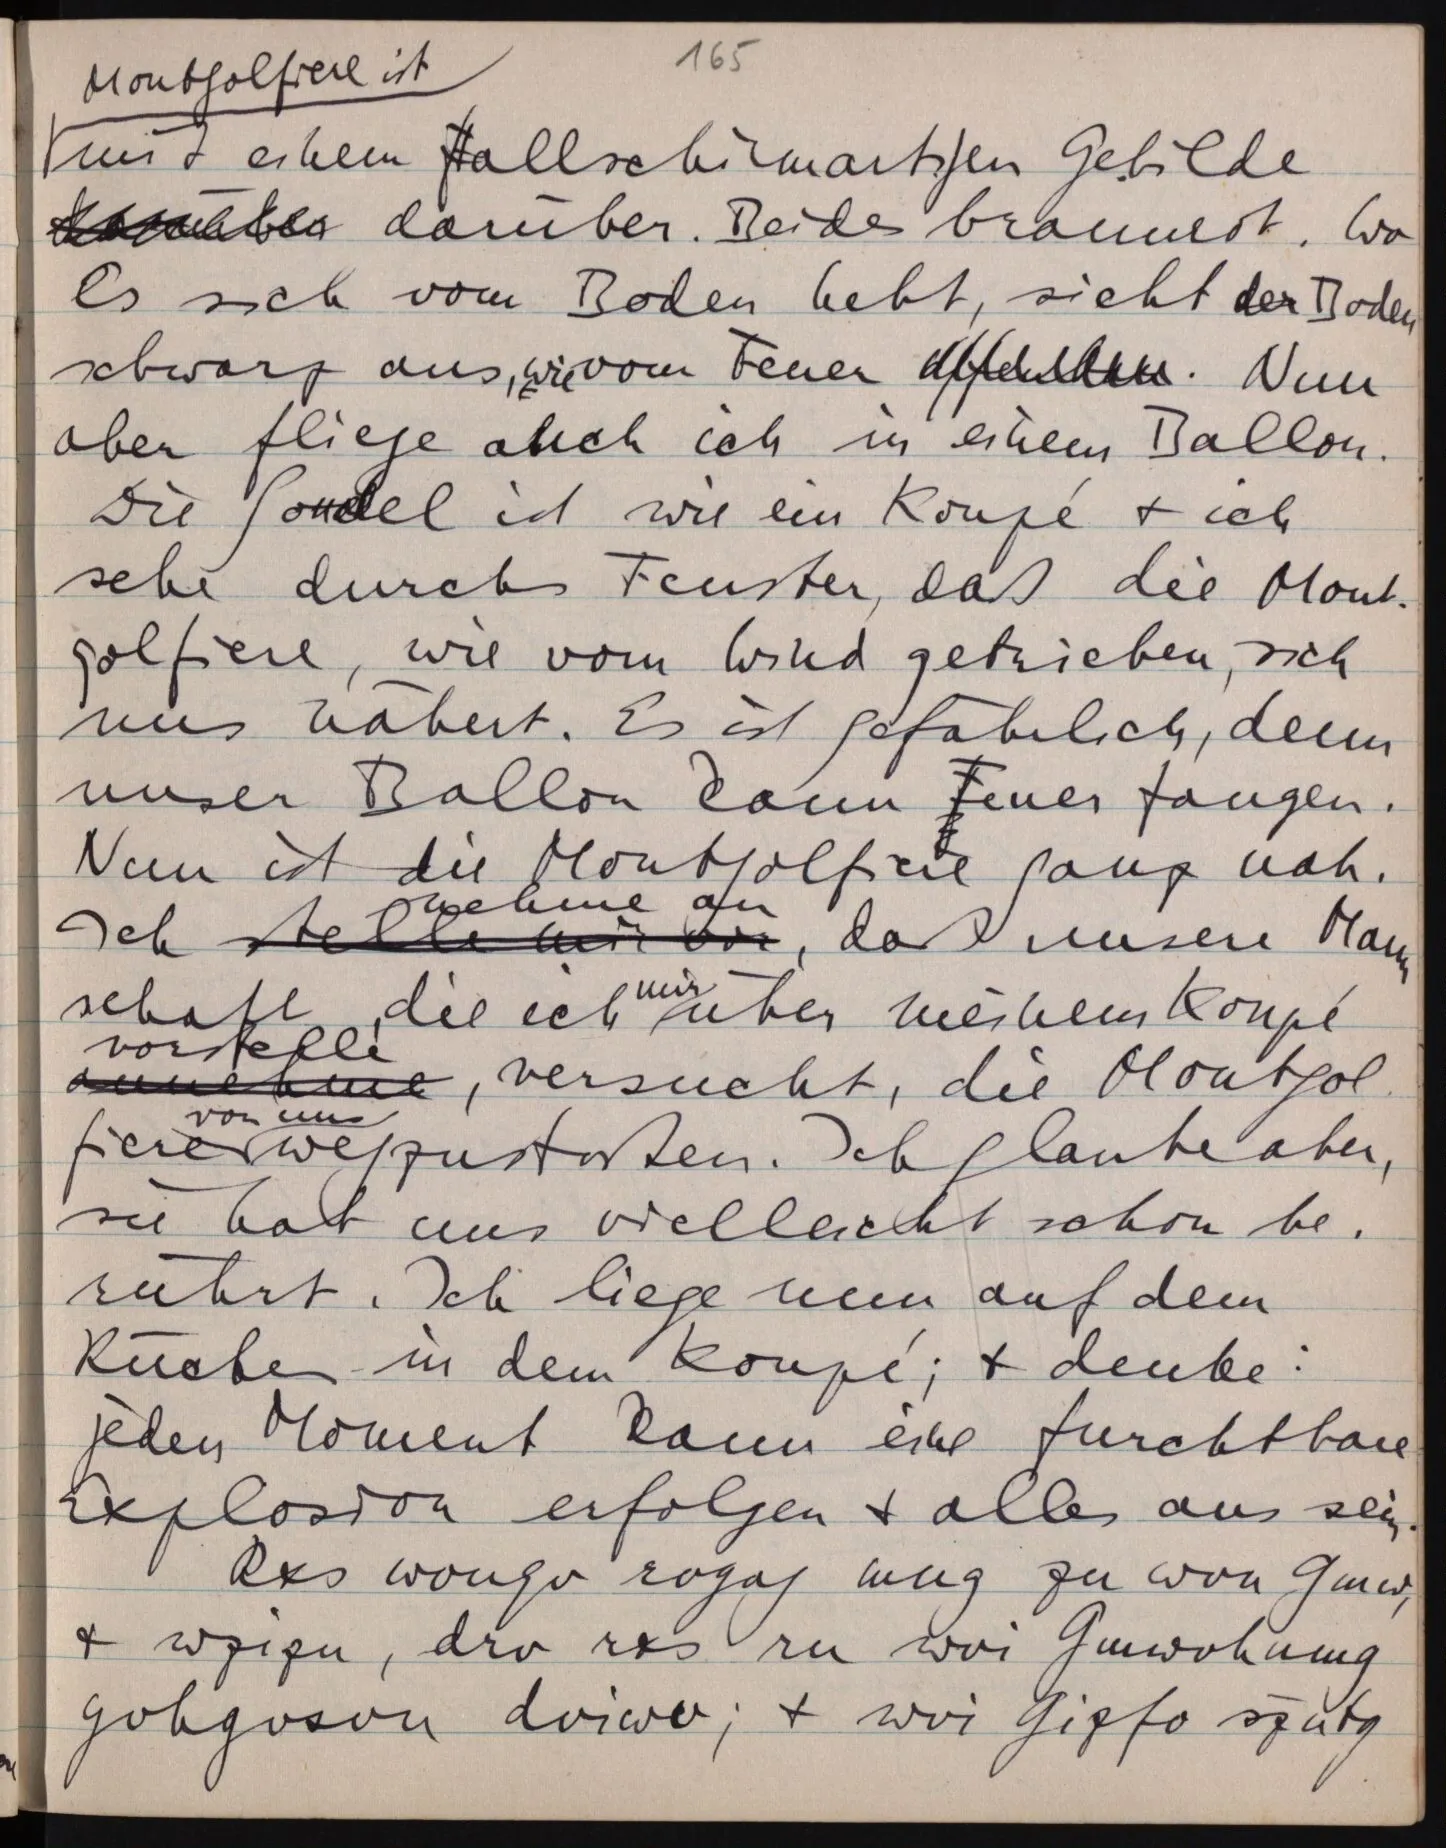 165
Montgolfiere ist
mit einem fallschirmartigen Gebilde
darüber. Beides brannte. Wo
es sich vom Boden hebt, sieht der Boden
schwarz aus, wie vom Feuer. Nun
aber fliege auch ich in einem Ballon.
Die Gondel ist wie ein Koupé + ich
sehe durchs Fenster, daß die Mont-
golfiere, wie vom Wind getrieben, sich
uns nähert. Es ist gefährlich, denn
unser Ballon kann Feuer fangen.
Nun ist die Montgolfiere ganz nah.
nehme an
Ich stelle mir vor, daß unsere Mann
schaft, die ich mir über meinem Koupé
vorstelle
annehme, versucht, die Montgol
von uns
fiere wegzustoßen. Ich glaube aber,
sie hat uns vielleicht schon be-
rührt. Ich liege nun auf dem
Rücken in dem Koupé; + denke:
jeden Moment kann eine furchtbare
Explosion erfolgen + alles aus sein.
Rxs wongv rogaj mug zu won Gmw,
+ wzizn, drv rxs rn wvi Gmwohnmg
gohgvson dviwv; + wvi Gipfo